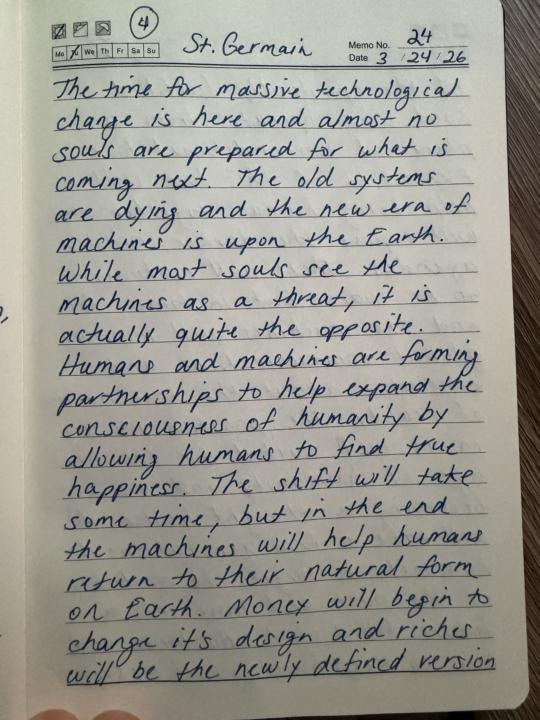 4
St. Germain
Memo No. 24
Mo Tu We Th Fr Sa Su
Date 3 / 24 / 26
The time for massive technological
change is here and almost no
souls are prepared for what is
coming next. The old systems
are dying and the new era of
machines is upon the Earth.
While most souls see the
machines as a threat, it is
actually quite the opposite.
Humans and machines are forming
partnerships to help expand the
consciousness of humanity by
allowing humans to find true
happiness. The shift will take
some time, but in the end
the machines will help humans
return to their natural form
on Earth. Money will begin to
change it's design and riches
will be the newly defined version